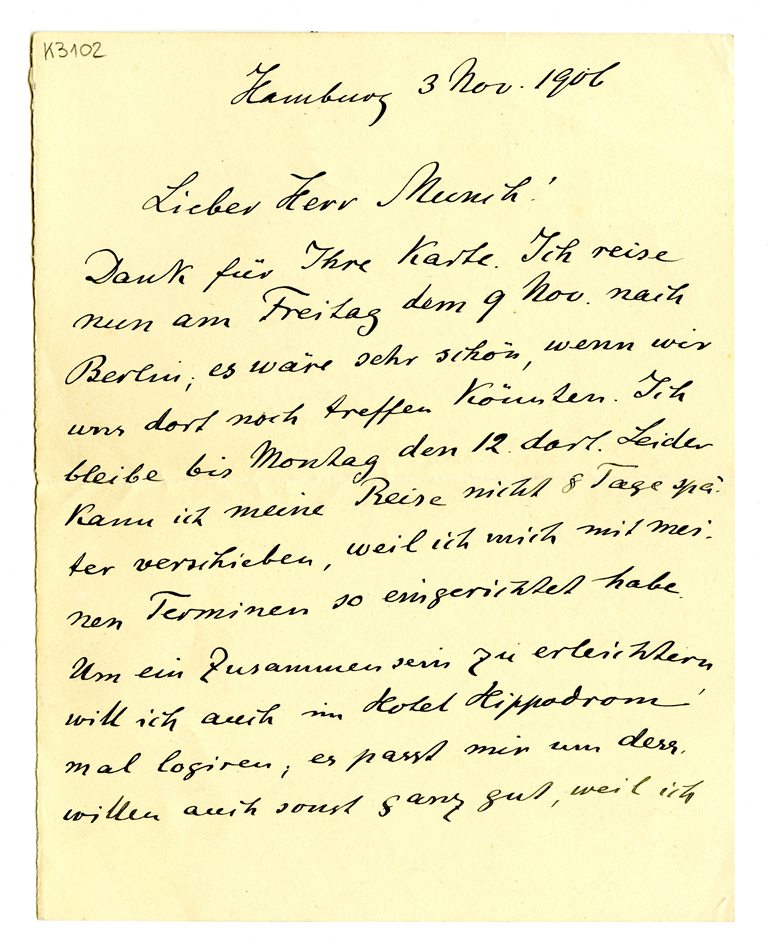 K3102
Hamburg 3 Nov. 1906
Lieber Herr Munch!
Dank für Ihre Karte. Ich reise
nun am Freitag dem 9 Nov. nach
Berlin; es wäre sehr schön, wenn wir
uns dort noch treffen könnten. Ich
bleibe bis Montag den 12. dort. Leider
kann ich meine Reise nicht 8 Tage spä-
ter verschieben, weil ich mich mit mei-
nen Terminen so eingerichtet habe.
Um ein Zusammensein zu erleichtern
will ich auch im Hotel Hippodrom
mal logiren; es passt mir um dess-
willen auch sonst ganz gut, weil ich